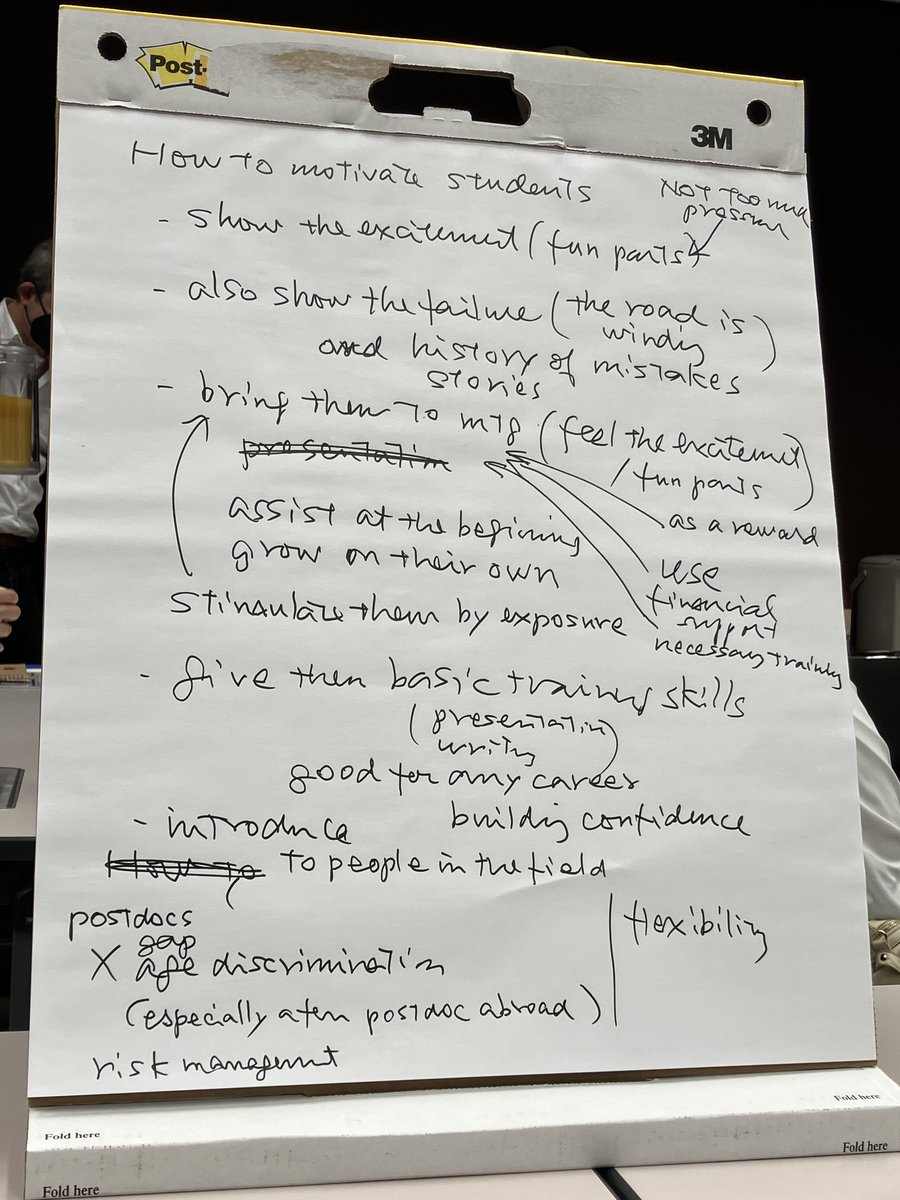 Post-
3M
How to motivate students
NOT TOO mu
pressur
- show the excitemut (fun parts)
- also show the failure (the road is
windy)
and history of mistakes
stories
- bring them to mtg (feel the excitemut
/ fun parts)
presentatin
as a reward
assist at the begining
grow on their own
use
financial
support
necessary training
stimulate them by exposure
- give them basic training skills
(presentatin
writing)
good for any career
- introduce
building confidence
How to to people in the field
postdocs
flexibility
gap
X age discriminatin
(especially aten postdoc abroad)
risk managemt
Fold here
Fold here
Fold here
Fold here